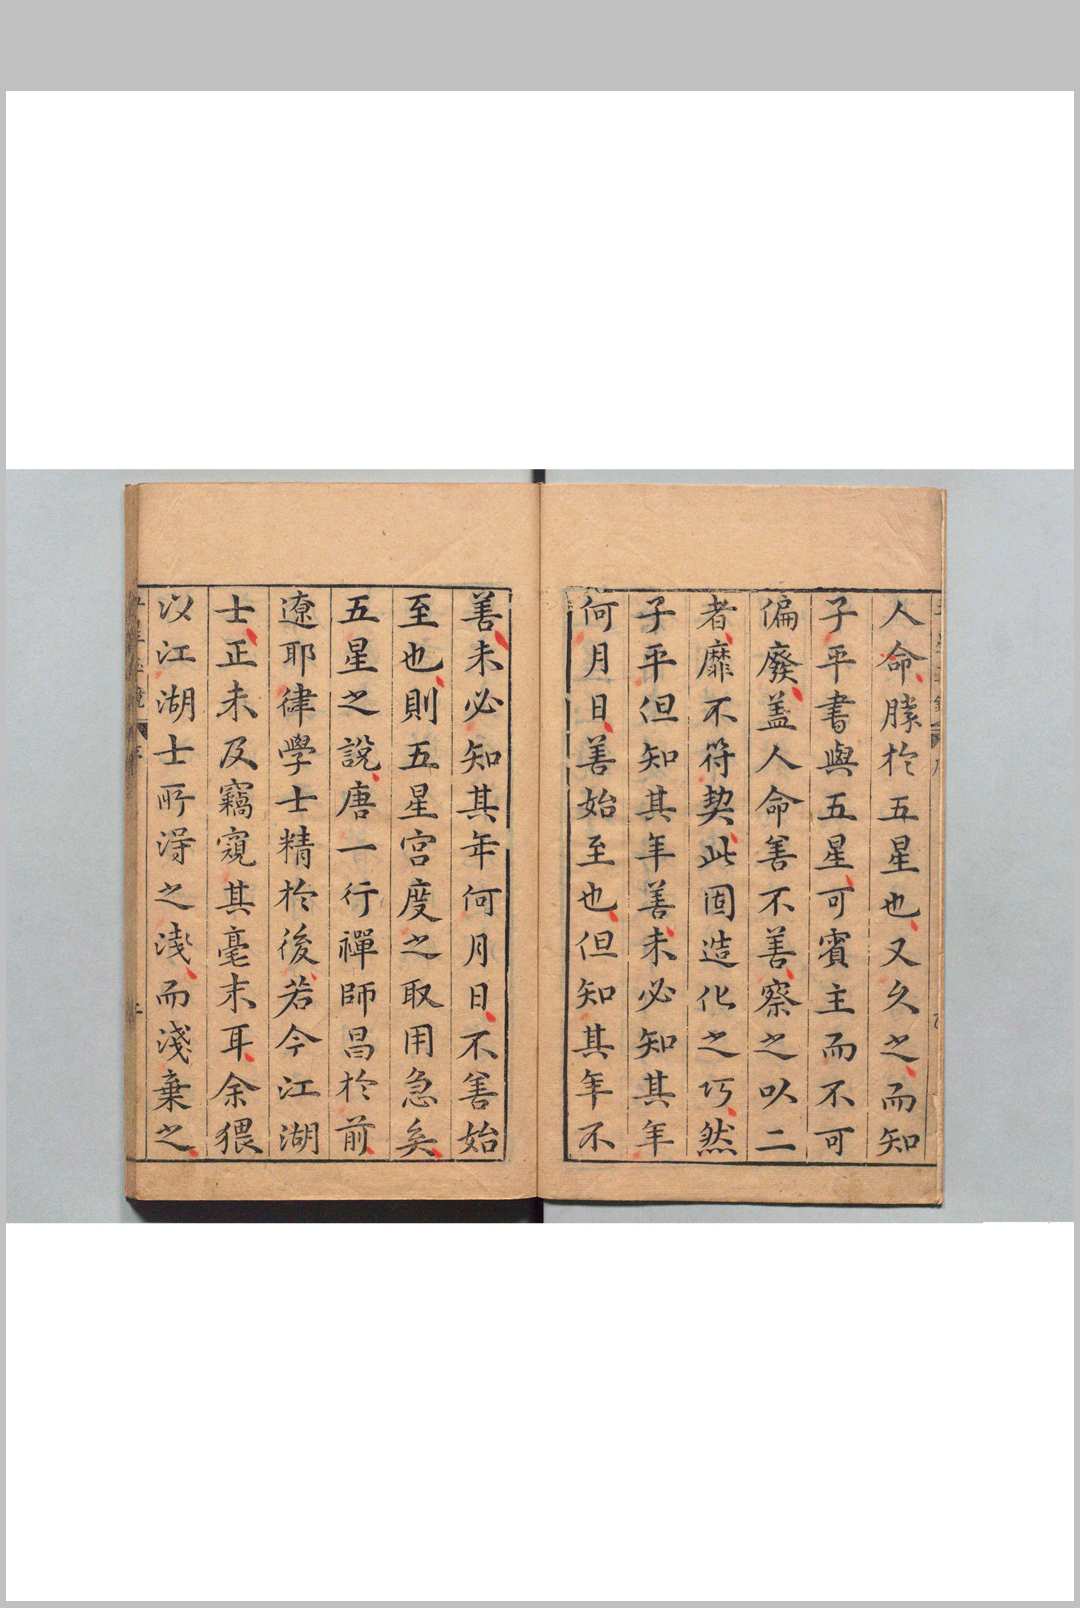 人命㬺於五星也又久之而知
子平書與五星可賓主而不可
偏廢蓋人命善不善察之以二
者靡不符契此固造化之巧然
子平但知其年善未必知其年
何月日善始至也但知其年不
善未必知其年何月日不善始
至也則五星宮度之取用急矣
五星之說唐一行禪師昌於前
遼耶律學士精於後若今江湖
士正未及竊窺其毫末耳余猥
以江湖士所得之淺而淺棄之